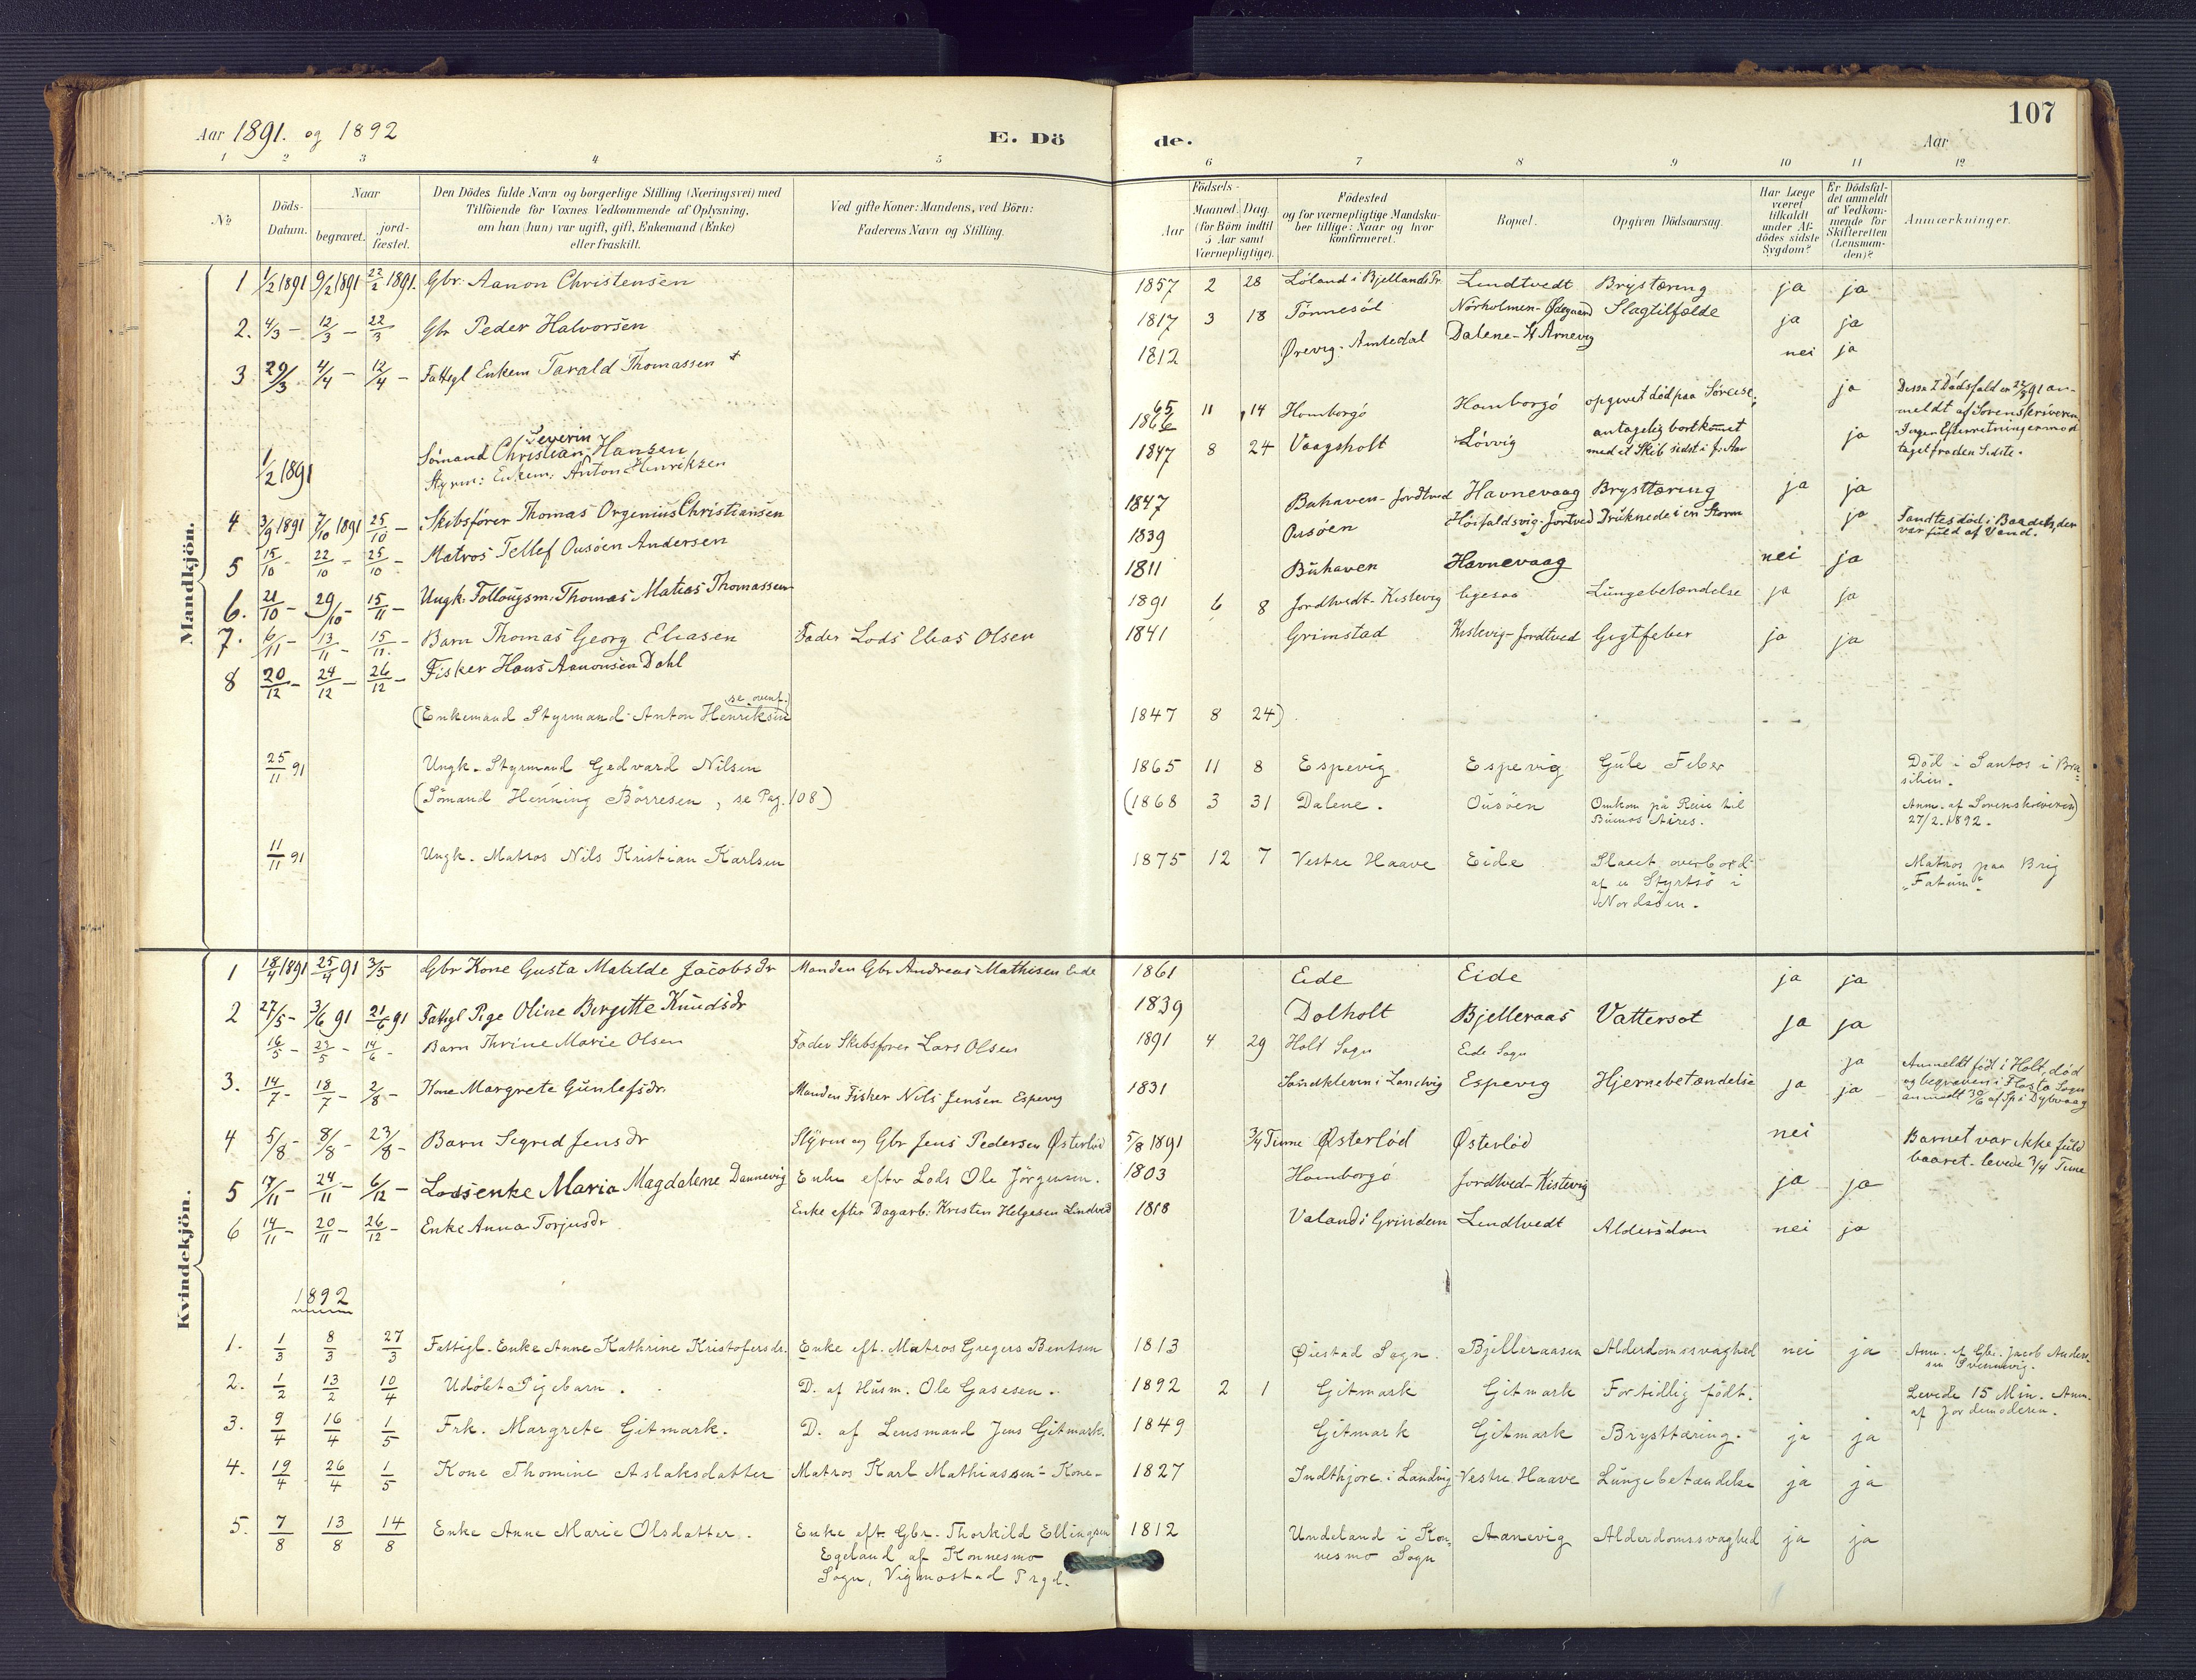 Aar 1891. og 1892
E. Dö
de.
Aar
107
1 2 3 4 5 6 7 8 9 10 11 12
No
Döds-Datum.
Naar
begravet.
jord-fæstet.
Den Dödes fulde Navn og borgerlige Stilling (Næringsvei) med
Tilföiende for Voxnes Vedkommende af Oplysning,
om han (hun) var ugift, gift, Enkemand (Enke)
eller fraskilt.
Ved gifte Koner: Mandens, ved Börn:
Faderens Navn og Stilling.
Födsels-
Aar
Maaned. Dag.
(for Börn indtil
5 Aar samt
Værnepligtige).
Födested
og for værnepligtige Mandska-
ber tillige: Naar og hvor
konfirmeret.
Bopæl.
Opgiven Dödsaarsag.
Har Læge
været
tilkaldt
under Af-
dödes sidste
Sygdom?
Er Dödsfal-
det anmeldt
af Vedkom-
mende for
Skifteretten
(Lensman-
den)?
Anmærkninger.
Mandkjön.
1 1/2 1891 9/2 1891 22/2 1891. Gbr. Aanon Christensen 1857 2 28 Löland i Bjellands Pr. Lindtvedt Brystæring ja ja
2. 4/3 - 12/3 - 22/3 Gbr Peder Halvorsen 1817 3 18 Tönnesöl Nörholmen-Ødegaard Slagtilfælde ja ja
3. 29/3 4/4 - 12/4 - Fattigl Enkem Tarald Thomassen + 1812 Ørevig-Amtedal Dalene-St Arnevig nei ja
Sömand Christian Severin Hansen 1866 65 11 14 Homborgö Homborgö opgivet död paa Söreise, ja Disse 2 Dödsfald er 22/8 91 an-
meldt af Sorenskriveren,
1/2 1891 Styrm: Enkem: Anton Henriksen 1847 8 24 Vaagsholt Lövvig antagelig bortkommet
med et Skib sidst i f. Aar ja Ingen Efterretninger mod
taget fra den Sidste.
4 3/9 1891 7/10 1891 25/10 - Skibsförer Thomas Orgenius Christiansen 1847 Buhaven-Jordtved Havnevaag Brysttæring ja ja
5 15/10 - 22/10 - 25/10 - Matros Tellef Ousöen Andersen 1839 Ousöen Höifaldsvig-Jortved Druknede i en Storm ja Fandtes död i Baaden, der
var fuld af Vand.
6. 21/10 - 29/10 - 15/11 - Ungk. Thomas Matias Thomassen 1811 Buhaven Havnevaag nei ja
7. 6/11 - 13/11 - 15/11 - Barn Thomas Georg Eliasen Fader Lods Elias Olsen 1891 6 8 Jordtvedt-Kistevig ligesaa Lungebetændelse ja ja
8 20/12 - 24/12 - 26/12 - Fisker Hans Aanonsen Dahl 1841 Grimstad Kistevig-Jordtved Gigtfeber ja ja
(Enkemand Styrmand Anton Henriksen se ovenf.) 1847 8 24)
25/11 91 Ungk. Styrmand Gedvard Nilsen 1865 11 8 Espevig Espevig Gule Feber Död i Santos i Bra-
silien.
(Sömand Henning Börresen, se Pag. 108) (1868 3 31 Dalene. Ousöen Omkom på Reise til
Buenos Aires. Anm. af Sorenskriveren)
27/2. 1892.
11/11 91 Ungk. Matros Nils Kristian Karlsen 1875 12 7 Vestre Haave Eide Slaaet overbord
af en Styrtsö i
Nordsöen. Matros paa Brig
"Fatum".
Kvindekjön.
1 18/4 1891 25/4 91 3/5 Gbr Kone Gusta Matilde Jacobsdr Manden Gbr Andreas Mathisen Eide 1861 Eide Eide ja ja
2 27/5 - 3/6 91 21/6 91 Fattigl Pige Oline Birgitte Knudsdr 1839 Dolholt Bjelleraas Vattersot ja ja
16/5 - 23/5 - 14/6 - Barn Thrine Marie Olsen Fader Skibsförer Lars Olsen 1891 4 29 Holt Sogn Eide Sogn ja Anmeldt född i Holt, död
og begraven i Flosta Sogn
anmeldt 30/6 af Sp i Dybvaag
3. 14/7 - 18/7 - 2/8 - Kone Margrete Gunlefsdr. Manden Fisker Nils Jensen Espevig 1831 Sandkleven i Landvig Espevig Hjernebetændelse ja ja
4 5/8 - 8/8 - 23/8 - Barn Sigrid Jensdr Styrm og Gbr Jens Pedersen Østerlöd 5/8 1891 3/4 Time Østerlöd Østerlöd nei Barnet var ikke fuld
baaret-levede 3/4 Time
5 17/11 - 24/11 - 6/12 - Lodsenke Maria Magdalene Dannevig Enke efter Lods Ole Jörgensen. 1803 Homborgö Jordtved-Kistevig ja ja
6 14/11 - 20/11 - 26/12 - Enke Anna Torjusdr Enke efter Dagarb: Kristen Helgesen Lindtved 1818 Valand i Grindem Lindtvedt Aldersdom nei ja
1892
1. 1/3 8/3 27/3 Fattigl. Enke Anne Kathrine Kristofersdr. Enke eft. Matros Gregers Bentsen 1813 Øiestad Sogn. Bjelleraasen Alderdomssvaghed nei ja Anm. af Gbr. Jacob Anders-
en Svennevig.
2. 1/2 13/2 10/4 Udöbt Pigebarn. D. af Husm. Ole Gasesen. 1892 2 1 Gitmark Gitmark For tidlig födt. Levede 15 Min. Anm.
af Jordemoderen.
3. 9/4 16/4 1/5 Frk. Margrete Gitmark. D. af Lensmand Jens Gitmark. 1849 Gitmark Gitmark Brysttæring. ja ja
4. 19/4 26/4 1/5 Kone Thomine Aslaksdatter Matros Karl Mathiassens Kone- 1827 Indthjore i Landvig Vestre Haave Lungebetændelse ja ja
5. 7/8 13/8 14/8 Enke Anne Marie Olsdatter. Enke eft. Gbr. Thorkild Ellingsen
Egeland af Konnesmo
Sogn, Vigmostad Prgd. 1812 Undeland i Kon-
nesmo Sogn Aanevig Alderdomssvaghed ja ja